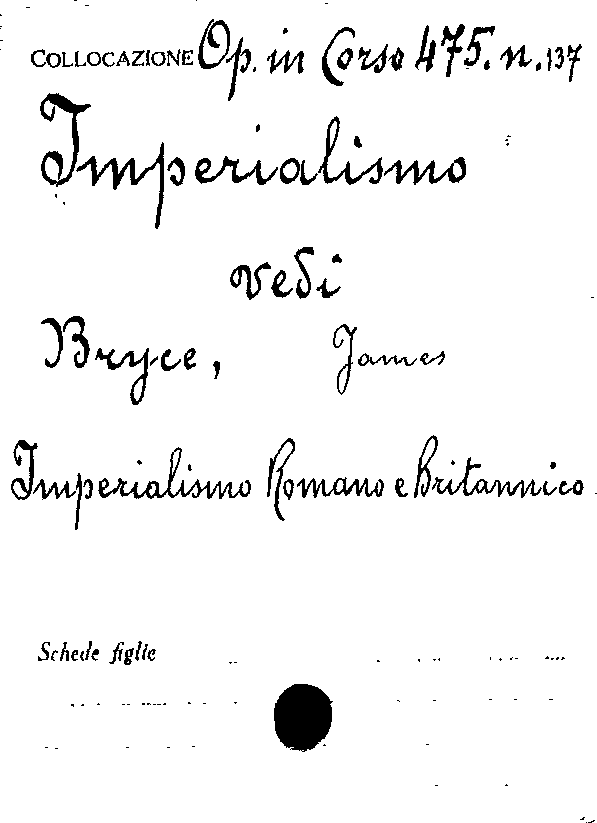 COLLOCAZIONE Op. in Corso 475. n. 137
Imperialismo
vedi
Bryce, James
Imperialismo Romano e Britannico
Schede figlie